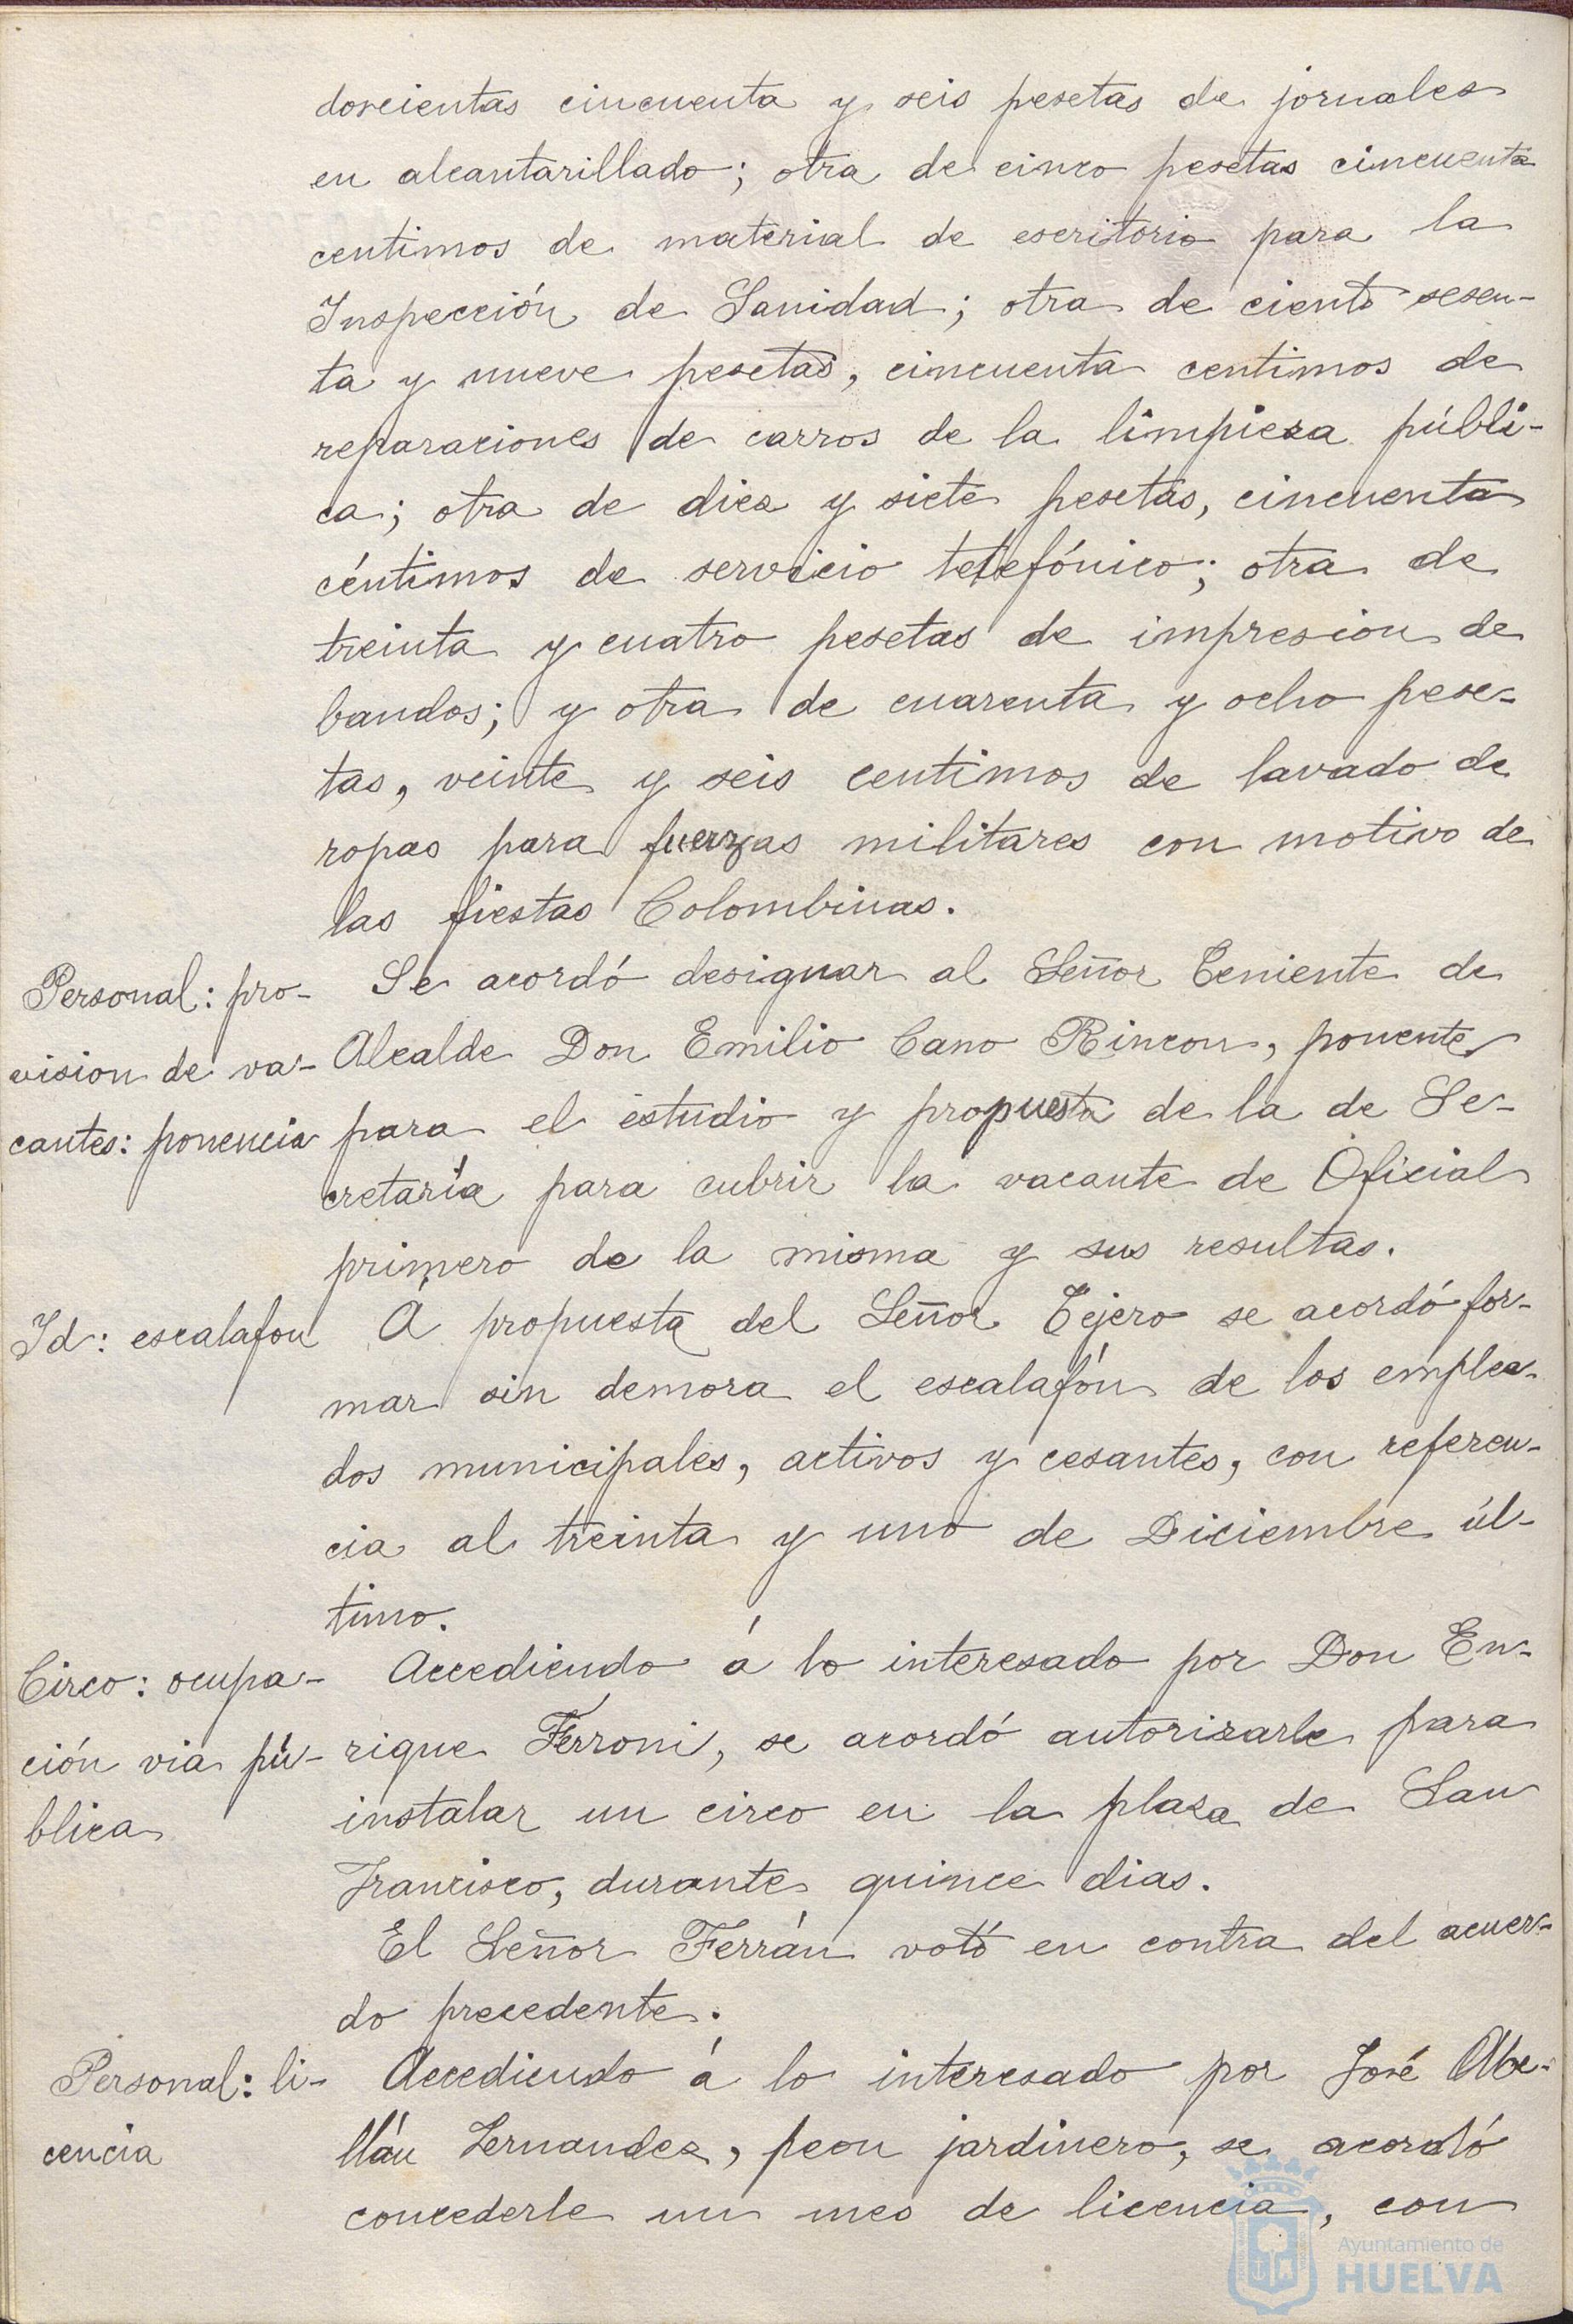 doscientas cincuenta y seis pesetas de jornales
en alcantarillado; otra de cinco pesetas cincuenta
centimos de material de escritorio para la
Inspección de Sanidad; otra de ciento sesen-
ta y nueve pesetas, cincuenta centimos de
reparaciones de carros de la limpieza públi-
ca; otra de diez y siete pesetas, cincuenta
céntimos de servicio telefónico; otra de
treinta y cuatro pesetas de impresion de
bandos; y otra de cuarenta y ocho pese-
tas, veinte y seis centimos de lavado de
ropas para fuerzas militares con motivo de
las fiestas Colombinas.
Personal: pro-
vision de va-
cantes: ponencia
Se acordó designar al Señor Teniente de
Alcalde Don Emilio Cano Rincon, ponente
para el estudio y propuesta de la de Se-
cretaría para cubrir la vacante de Oficial
primero de la misma y sus resultas.
Id: escalafon
A propuesta del Señor Tejero se acordó for-
mar sin demora el escalafón de los emplea-
dos municipales, activos y cesantes, con referen-
cia al treinta y uno de Diciembre úl-
timo.
Circo: ocupa-
ción via pú-
blica
Accediendo á lo interesado por Don En-
rique Ferroni, se acordó autorizarle para
instalar un circo en la plaza de San
Francisco, durante quince dias.
El Señor Ferrán votó en contra del acuer-
do precedente.
Personal: li-
cencia
Accediendo á lo interesado por José Abe-
llán Fernandez, peon jardinero, se acordó
concederle un mes de licencia, con
Ayuntamiento de
HUELVA